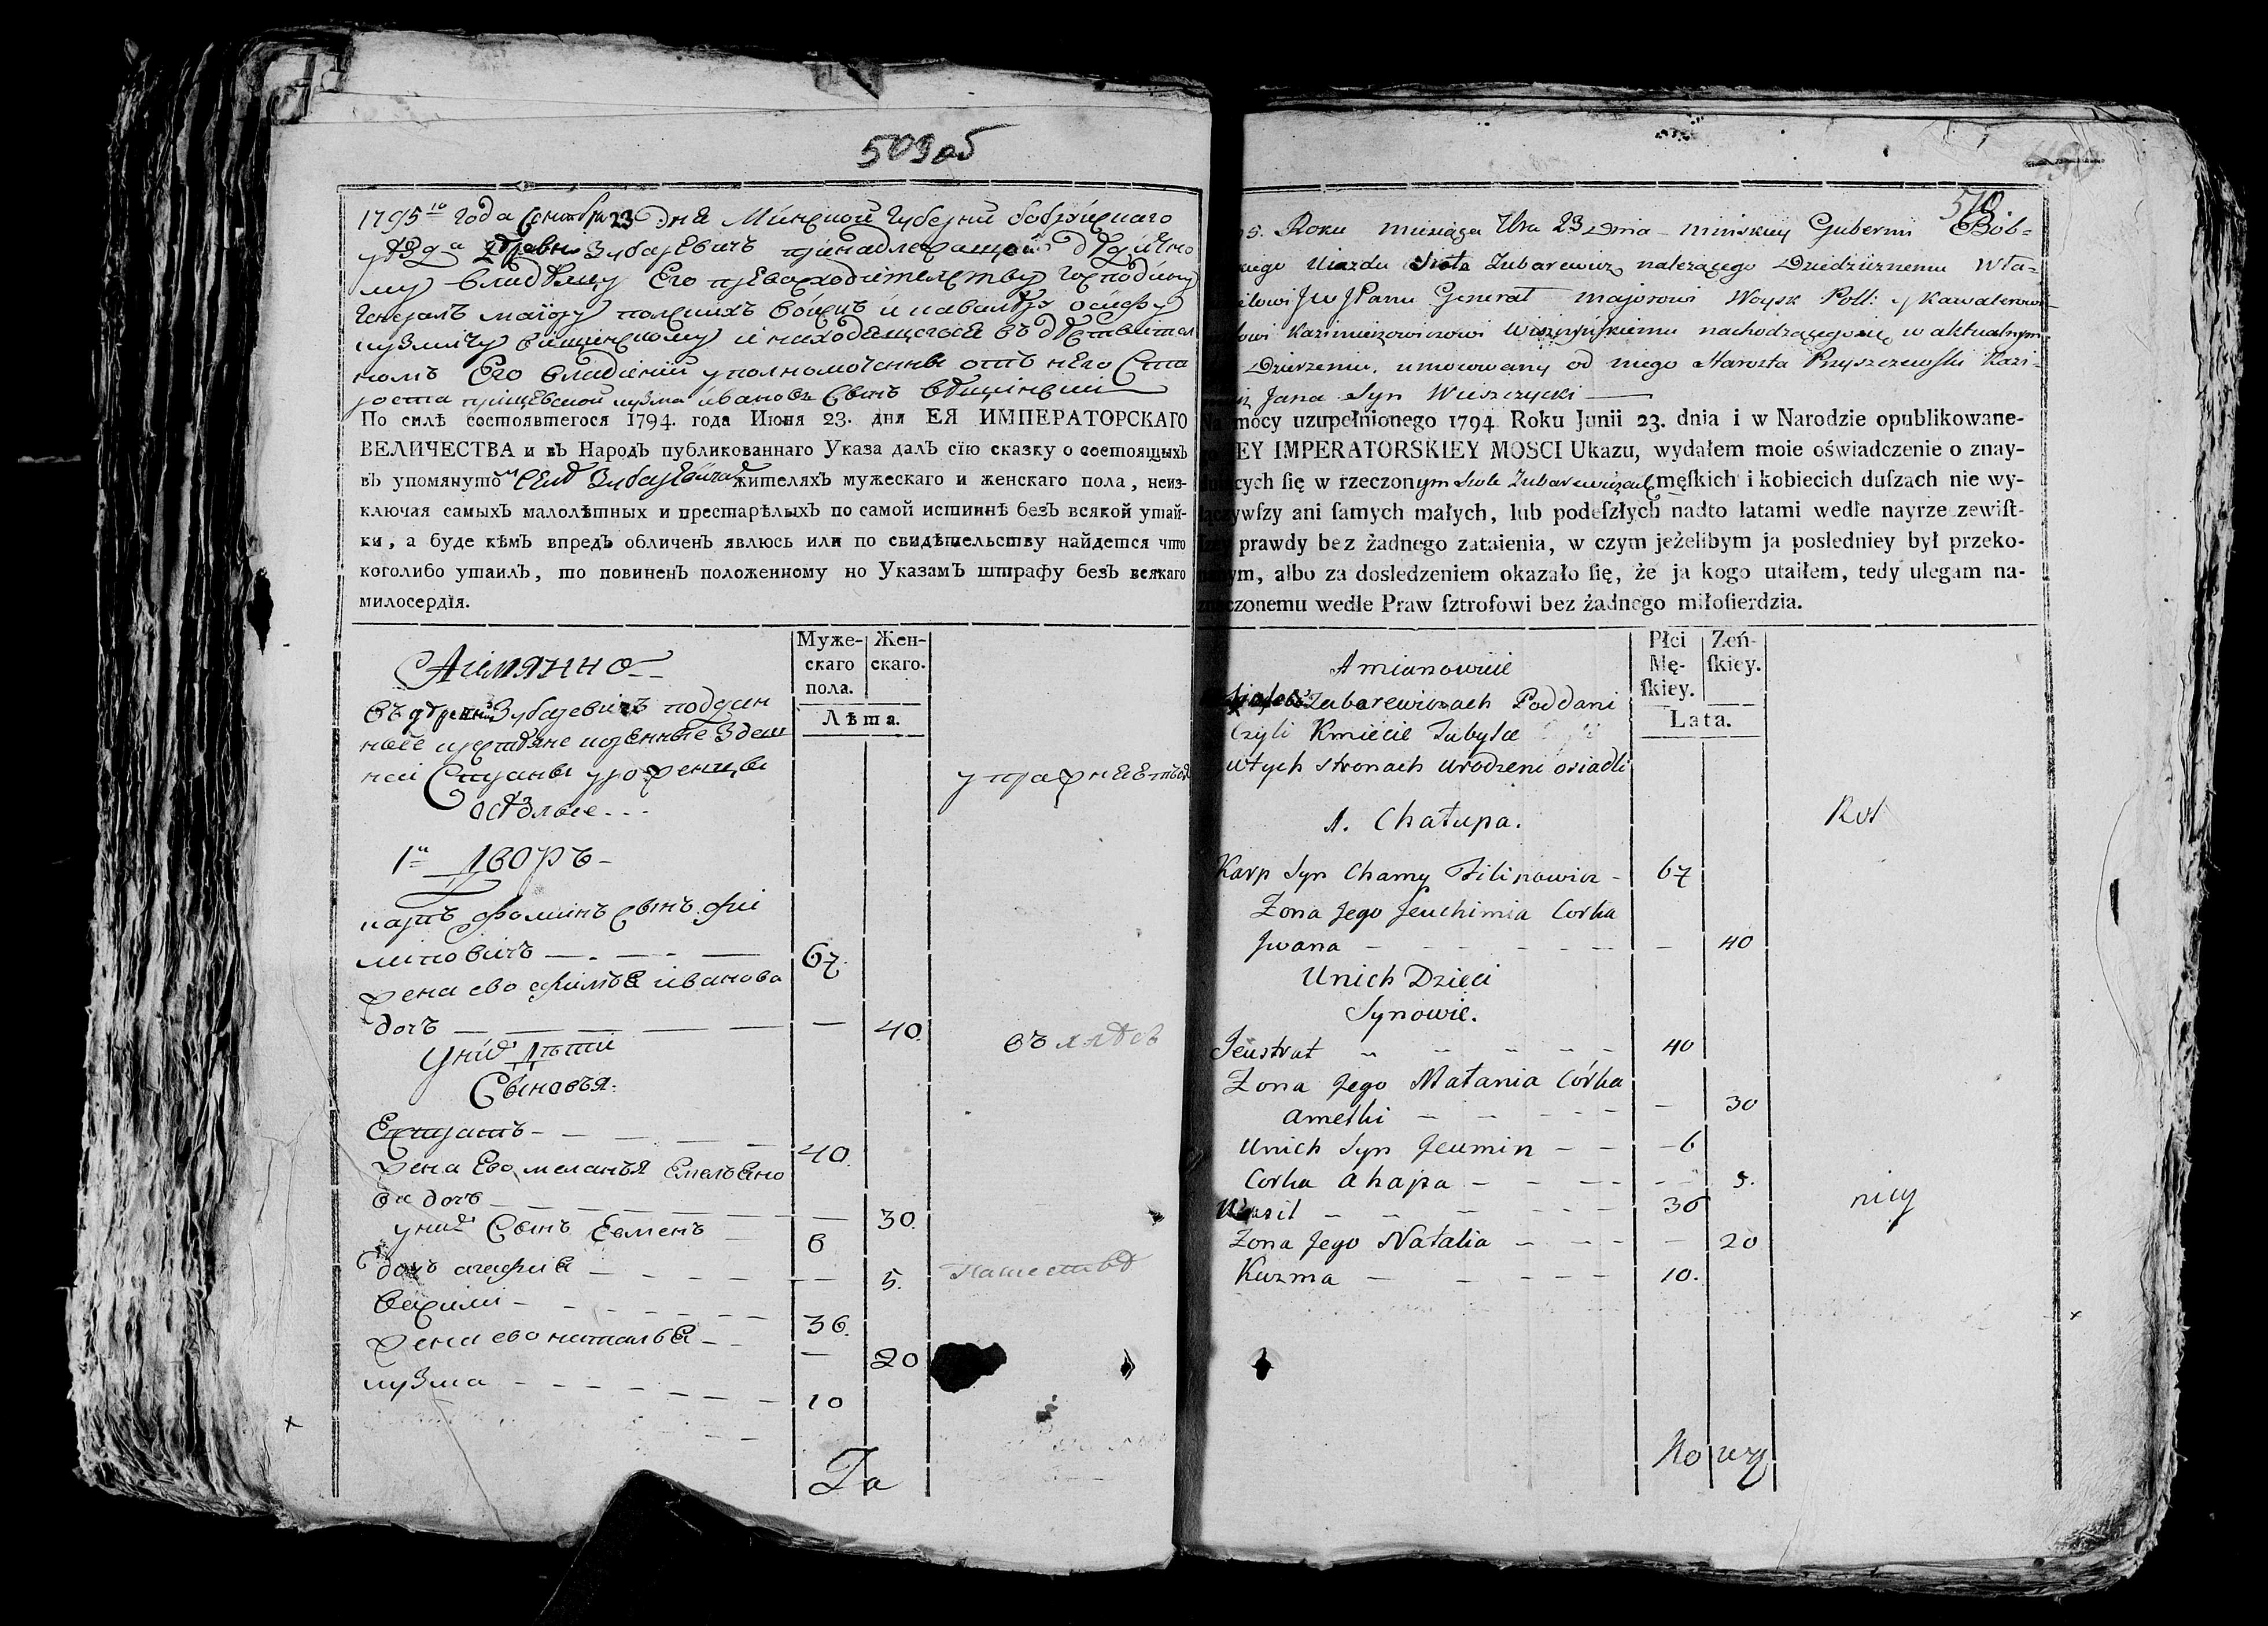 509 об
1795 го Года Сентября 23 дня Минской Губернии бобруйскаго
уезда деревни Зубаревичъ принадлежащей дедично
му владелцу Его превосходителству Господину
Генералъ маиору полскихъ войскъ и кавалеру осифу
кузмичу вищинскому и находящегося въ действител
номъ Его владении уполномоченны отъ него Ста
роста прищевской кузма ивановъ сынъ
По силѣ состоявшегося 1794. года Июня 23. дня ЕЯ ИМПЕРАТОРСКАГО
ВЕЛИЧЕСТВА и въ Народъ публикованнаго Указа далъ сїю сказку о состоящыхъ
въ упомянутомъ селе Зубаревичахъ жителяхъ мужескаго и женскаго пола, неиз-
ключая самыхъ малолѣтных и престарѣлыхъ по самой истиннѣ безъ всякой утай-
ки, а буде кѣмъ впредь обличенъ явлюсь или по свидѣтельству найдется что
коголибо утаилъ, то повиненъ положенному по Указамъ штрафу безъ всякаго
милосердїя.
Муже-
скаго
пола.
Жен-
скаго.
Лѣта.
Аимянно
въ деревни Зубаревичъ поддан
ные крестьяне коренные здеш
ней Страны уроженцы
оселые...
упражняется
1й Дворъ
карпъ фоминъ сынъ фи
липовичъ 67.
жена ево ефимья иванова
дочъ 40.
въ
Уних Дети
Сыновья:
Евстратъ 40.
жена Ево меланья Емельяно
ва дочь 30.
уних Сынъ Евменъ 6
дочь агафия 5.
василий 36.
жена ево наталья 20
кузма 10
Та
510
95. Roku miesiąca 7bra 23 Dnia minskiey Gubernii Bob-
kiego Uiazdu Sioła Zubarewicz należącego Dziedzicznemu Wła-
cielowi JW JPanu Generał majorowi Woysk Poll: y Kawalerowi
fowi Kazimierzowiczowi Wiszczyńskiemu nachodzącegosię w aktualnym
Dzierżeniu. umocowany od niego Starosta Przyszczewski Kazi-
Jana Syn Wieszczycki
Na mocy uzupełnionego 1794 Roku Junii 23. dnia i w Narodzie opublikowane-
go JEY IMPERATORSKIEY MOSCI Ukazu, wydałem moie oświadczenie o znay-
duiących ſię w rzeczonym Siole Zubarewiczach męſkich i kobiecich duſzach nie wy-
łączywſzy ani ſamych małych, lub podeſzłych nadto latami wedle nayrze zewiſt-
ſzey prawdy bez żadnego zataienia, w czym jeżelibym ja posledniey był przeko-
nanym, albo za dosledzeniem okazało ſię, że ja kogo utaiłem, tedy ulegam na-
znaczonemu wedle Praw ſztrofowi bez żadnego miłoſierdzia.
Płci
Mę-
ſkiey.
Zeń-
ſkiey.
Lata.
Amianowicie
Zubarewiczach Poddani
Czyli Kmiecie Tubylce
wtych stronach urodzeni osiadli
1. Chałupa.
Rol
Karp Syn Chamy Filinowicz - 67
Zona Jego Jeuchimia Corka
Jwana 40
Unich Dzieci
Synowie.
Jeustrat 40
Zona Jego Małania Córka
Amelki 30
Unich Syn Jeumin 6
Corka Ahapa 5.
Wasil 36
nicy
Zona Jego Natalia 20
Kuzma 10.